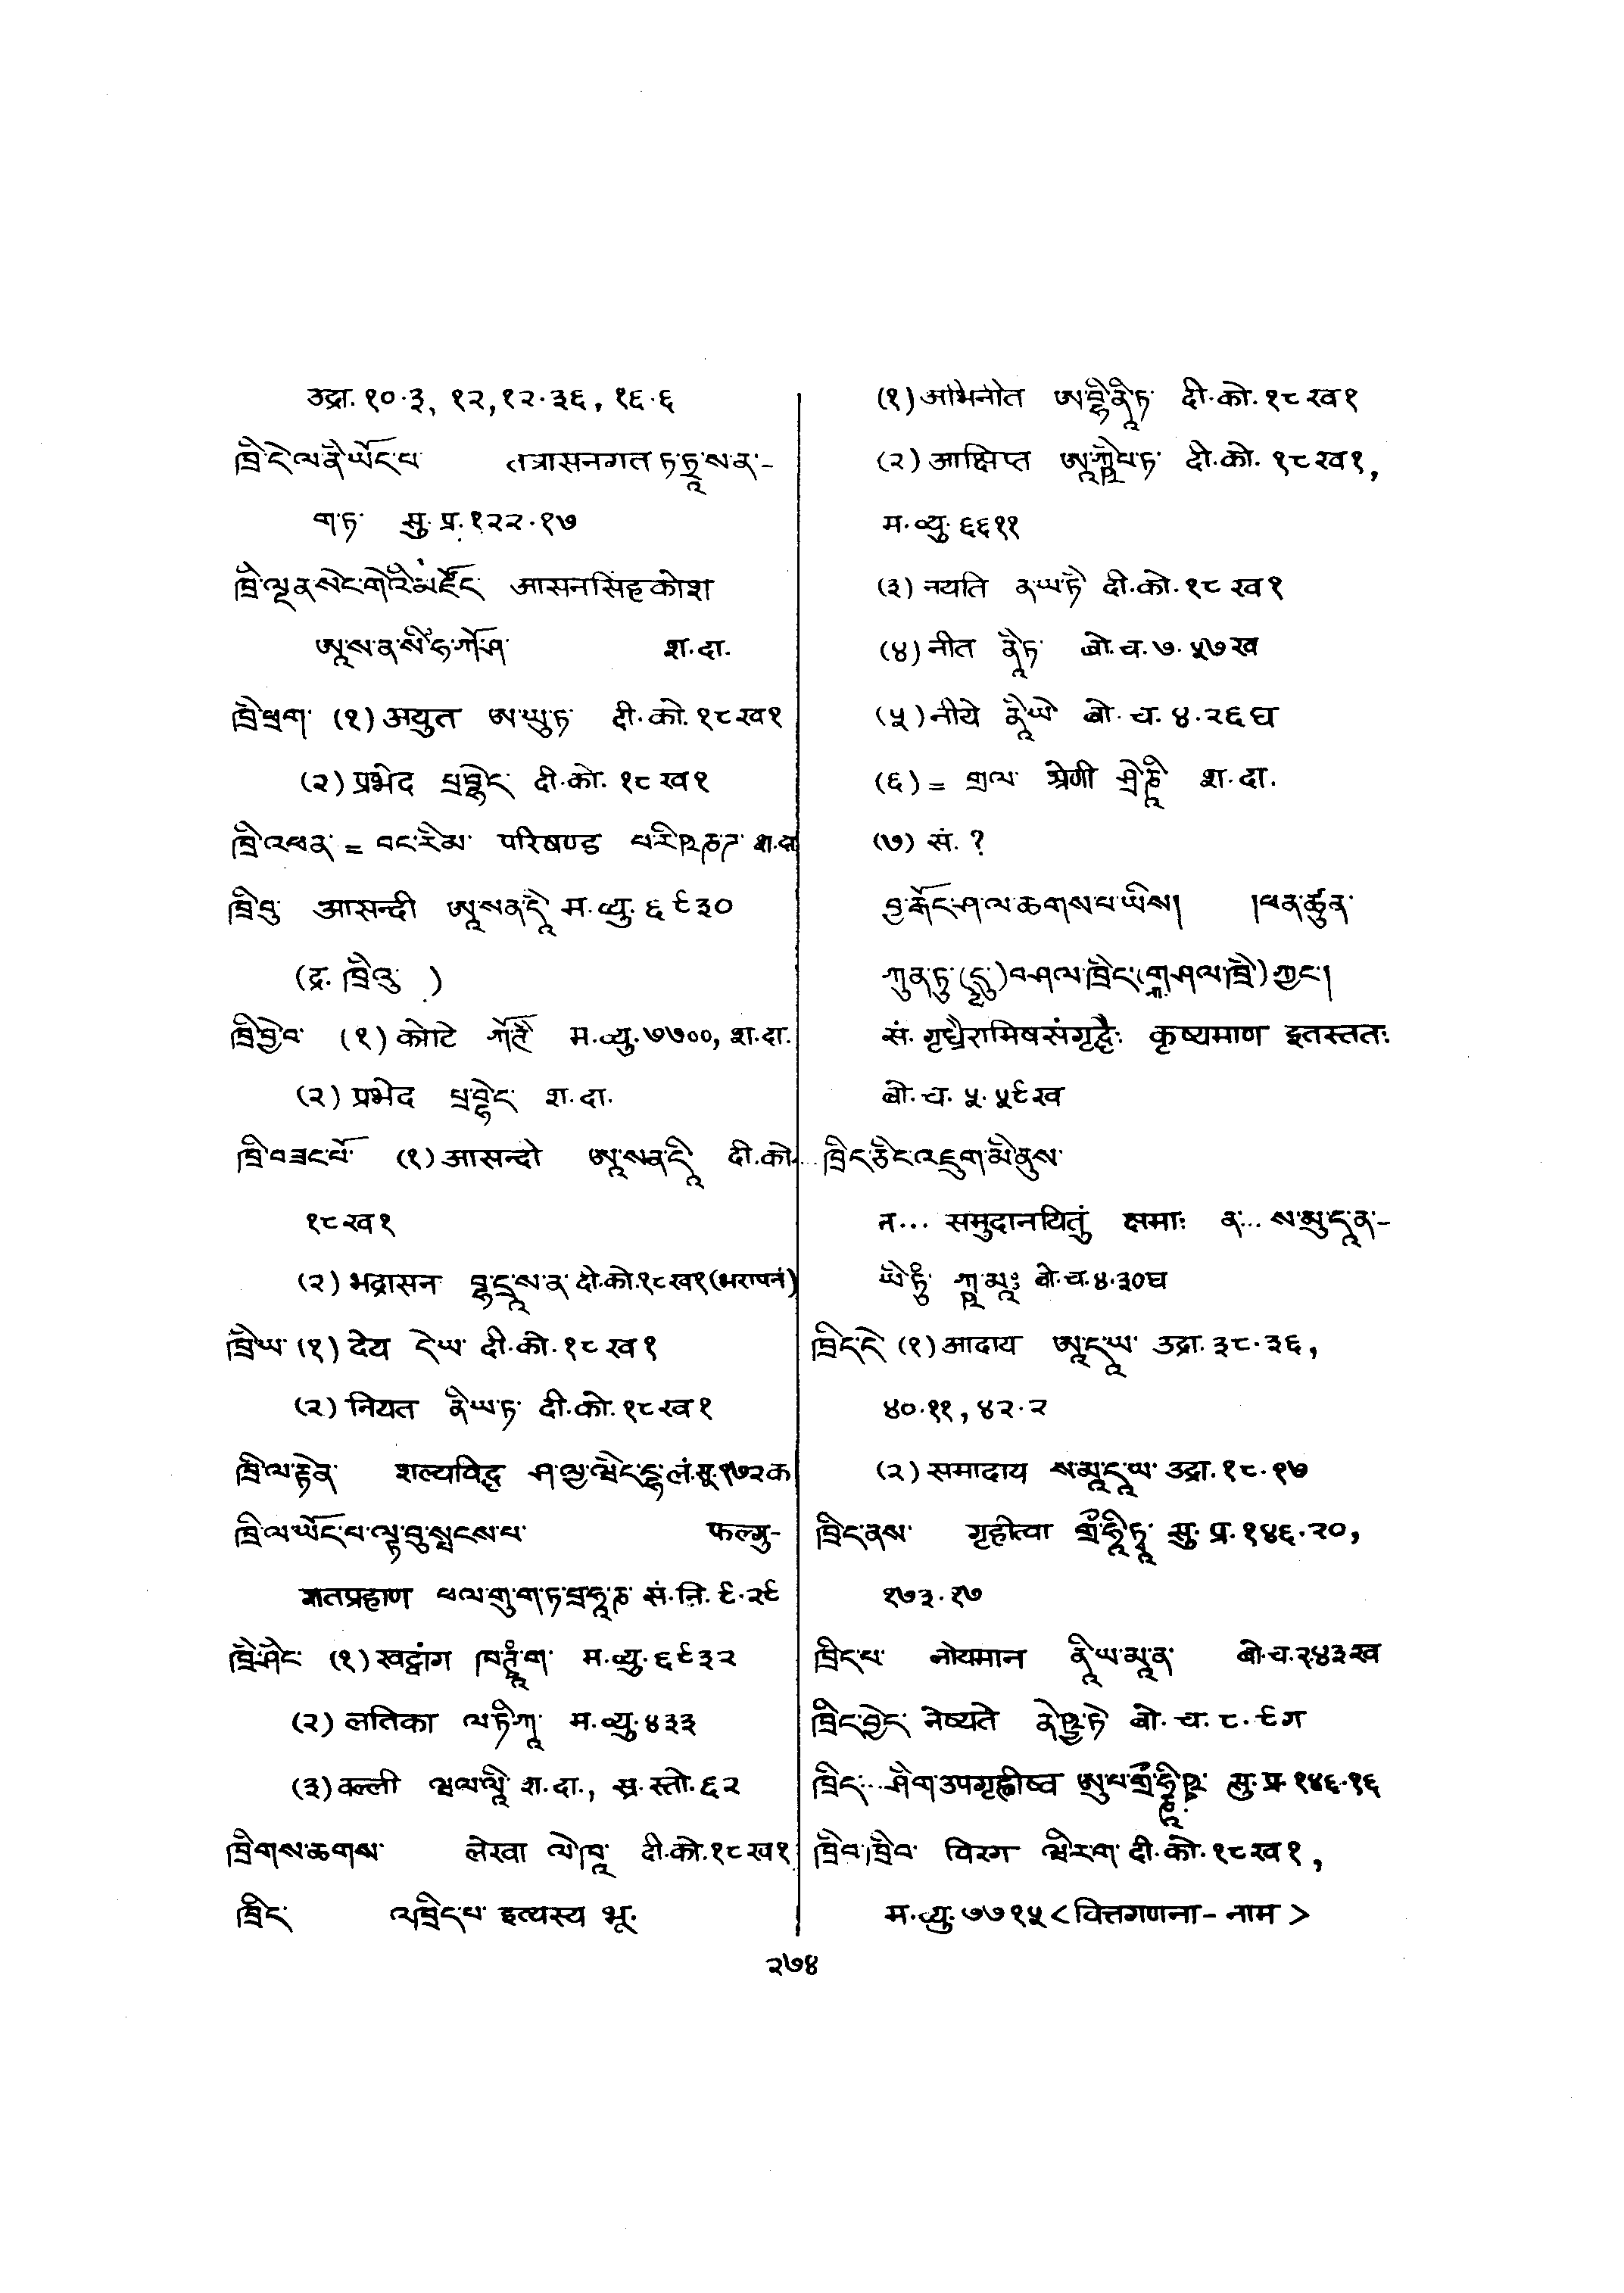 उद्रा. १०.३, १२, १२.३६, १६.६
ཁྲི་དེ་ལ་ནི་ཡོད་པ་ तत्रासनगत ཏ་ཏྲཱ་ས་ན་-
ག་ཏ་ सु. प्र. १२२.१७
ཁྲི་ལྡན་སེང་གེའི་མཛོད་ आसनसिंहकोश
ཨཱ་ས་ན་སིཾ་ཧ་ཀོ་ཤ་ श.दा.
ཁྲི་ཕྲག་ (१) अयुत ཨ་ཡུ་ཏ་ दी.को. १८ख१
(२) प्रभेद པྲ་བྷེ་ད་ दी.को. १८ख१
ཁྲི་འཕན་ = བང་རིམ་ परिषण्ड པ་རི་ཥ་ཎྜ་ श.दा
ཁྲི་བུ་ आसन्दी ཨཱ་སན་དཱི་ म.व्यु. ६९३०
(द्र. ཁྲིའུ་ )
ཁྲི་བྱེབ་ (१) कोटि ཀོ་ཊི་ म.व्यु. ७७००, श.दा.
(२) प्रभेद པྲ་བྷེ་ད་ श.दा.
ཁྲི་བཟང་པོ་ (१) आसन्दी ཨཱ་སན་དཱི་ दी.को.
१८ख१
(२) भद्रासन བྷ་དྲཱ་ས་ན་ दी.को. १८ख१ (भरापनं)
ཁྲི་ཡ་ (१) देय དེ་ཡ་ दी.को. १८ख१
(२) नियत ནི་ཡ་ཏ་ दी.को. १८ख१
ཁྲི་ལ་རྟེན་ शल्यविद्ध ཤ་ལྱ་ཝི་དྡྷ་ लं.सू. १७२क
ཁྲི་ལ་ཡོད་པ་ལྟ་བུ་སྤངས་པ་ फल्गु-
गतप्रहाण ཕལ་གུ་ག་ཏ་པྲ་ཧཱ་ཎ་ सं.नि. ९.२९
ཁྲི་ཤིང་ (१) खट्वांग ཁ་ཊྭཱཾ་ག་ म.व्यु. ६९३२
(२) लतिका ལ་ཏི་ཀཱ་ म.व्यु. ४३३
(३) वल्ली ཝལ་ལཱི་ श.दा., स्र.स्तो. ६२
ཁྲིགས་ཆགས་ लेखा ལེ་ཁཱ་ दी.को. १८ख१
ཁྲིད་ འཁྲིད་པ་ इत्यस्य भू.
(१) अभिनीत ཨ་བྷི་ནཱི་ཏ་ दी.को. १८ख१
(२) आक्षिप्त ཨཱ་ཀྵིཔ་ཏ་ दी.को. १८ख१,
म.व्यु. ६६११
(३) नयति ན་ཡ་ཏི་ दी.को. १८ख१
(४) नीत ནཱི་ཏ་ बो.च. ७.५७ख
(५) नीये ནཱི་ཡེ་ बो.च. ४.२६घ
(६) = གྲལ་ श्रेणी ཤྲེ་ཎཱི་ श.दा.
(७) सं. ?
བྱ་རྒོད་ཤ་ལ་ཆགས་པ་ཡིས། །ཕན་ཚུན་
ཀུན་ཏུ་ བཤལ་ཁྲིད་ ཀྱང་།
सं. गृध्रैरामिषसंगृद्धैः कृष्यमाण इतस्ततः
बो.च. ५.५९ख
ཁྲིད་ཅིང་འཇུག་མི་ནུས་
न... समुदानयितुं क्षमाः ན་... ས་མུ་དཱ་ན་-
ཡི་ཏུཾ་ ཀྵ་མཱཿ बो.च. ४.३०घ
ཁྲིད་དེ་ (१) आदाय ཨཱ་དཱ་ཡ་ उद्रा. ३८.३६,
४०.११, ४२.२
(२) समादाय ས་མཱ་དཱ་ཡ་ उद्रा. १८.१७
ཁྲིད་ནས་ गृहीत्वा གྲྀ་ཧཱི་ཏྭཱ་ सु. प्र. १४६.२०,
१७३.१७
ཁྲིད་པ་ नीयमान ནཱི་ཡ་མཱ་ན་ बो.च. २.४३ख
ཁྲིད་བྱེད་ नेष्यते ནེ་ཥྱ་ཏེ་ बो.च. ८.९ग
ཁྲིད་...ཤིག་ उपगृह्णीष्व ཨུ་པ་གྲྀ་ཧྞཱི་ཥྭ་ सु. प्र. १४६.१६
ཁྲིབ་ཁྲིབ་ विरग ཝི་ར་ག་ दी.को. १८ख१,
म.व्यु. ७७१५ < वित्तगणना-नाम >
२७४